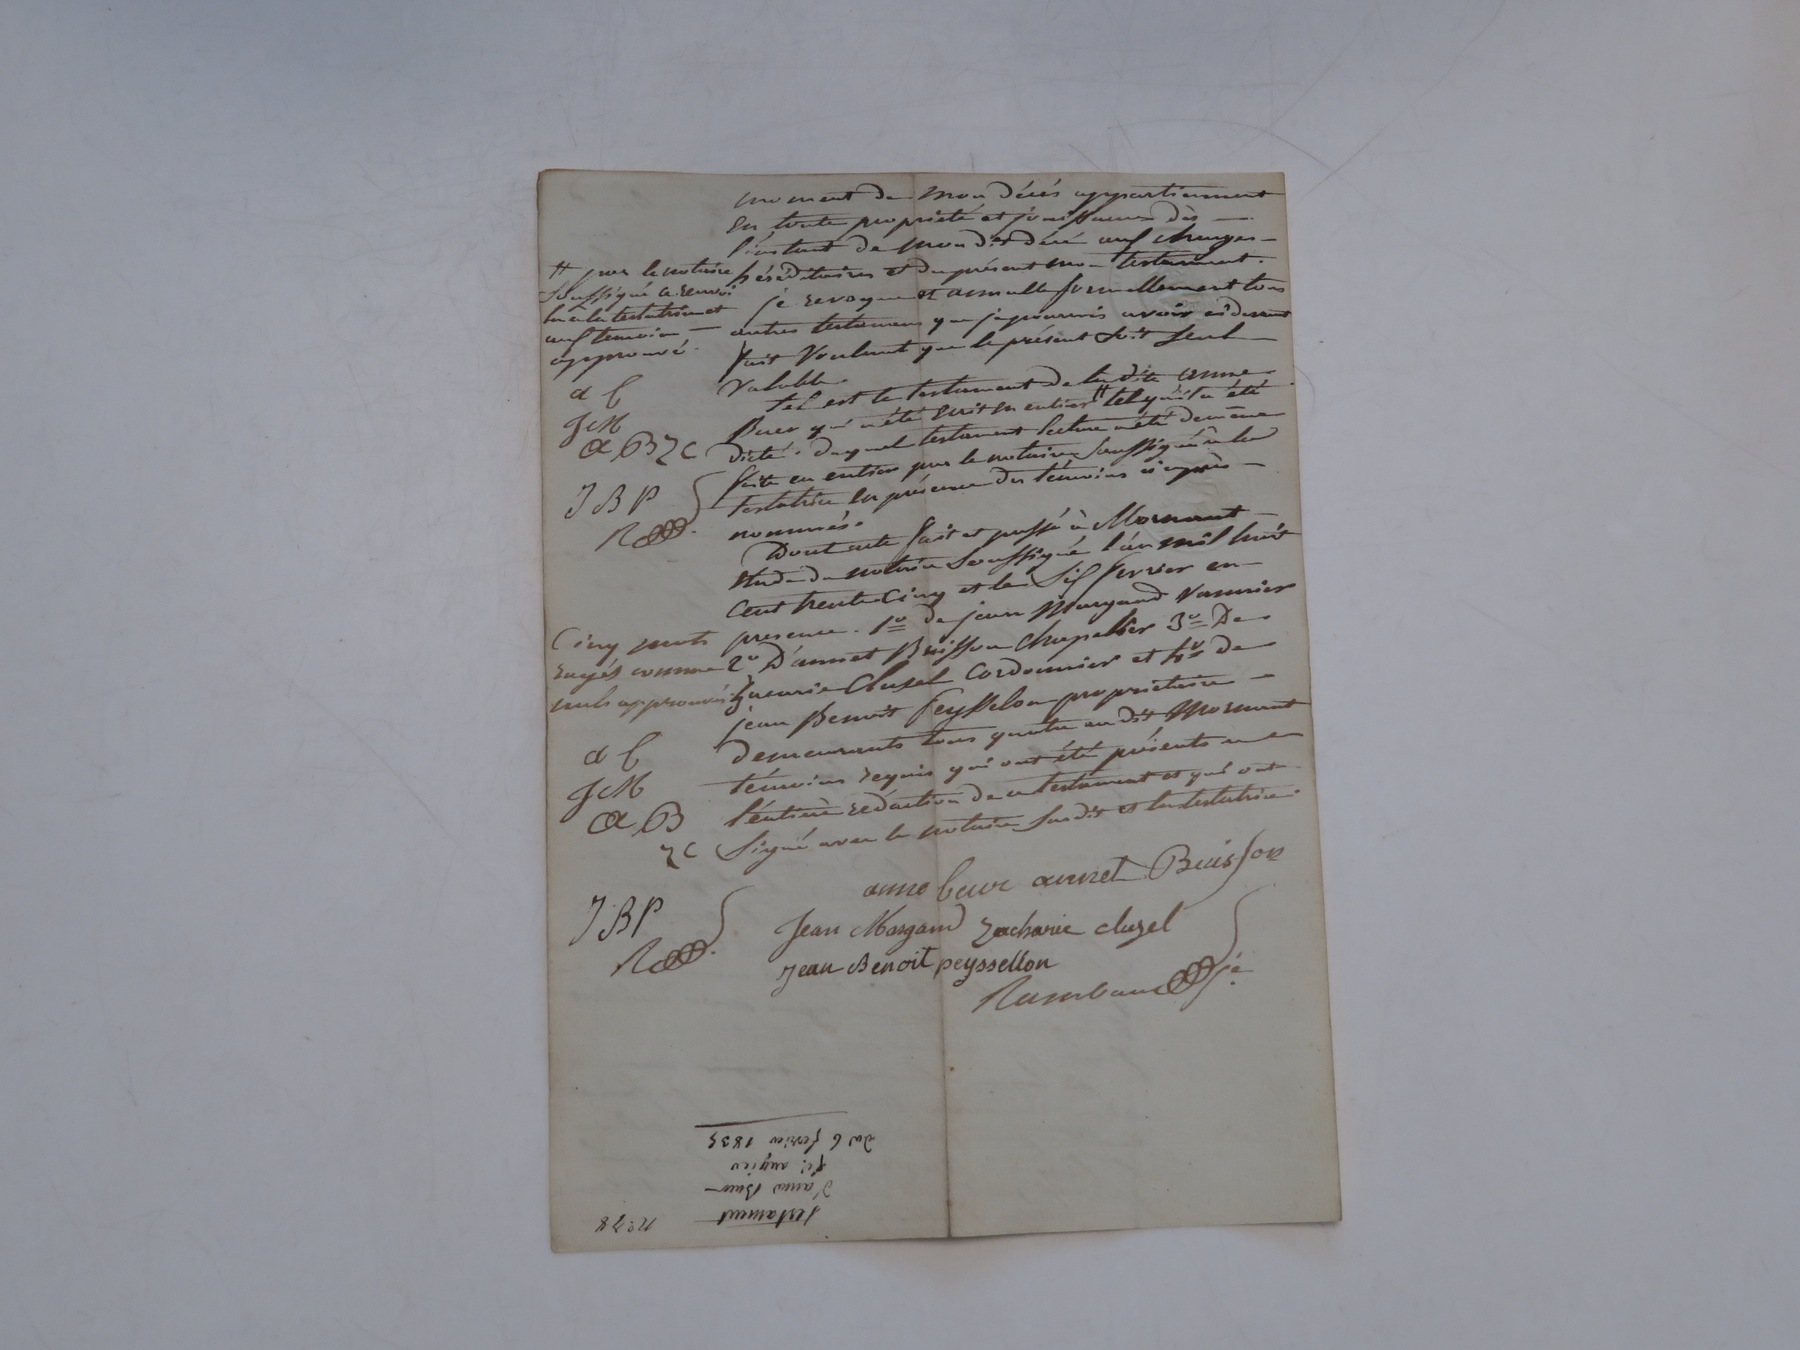 moment de mon décès appartiennent
en toute propriété et jouissance dès
l'instant de mon dit décé aux charges
héréditaires et du présent mon testament.
je revoque et annulle formellement tous
autres testamens que je pourrois avoir ci devant
fait Voulant que le présent soit seul
valable.
tel est le testament de la dite anne
Beur qui a été écrit en entier # tel qu'il a été
dicté. duquel testament lecture a été de même
faite en entier par le notaire soussigné à la
testatrice en présence des témoins ci après
nommés.
Dont acte fait et passé à Mornant
étude du notaire soussigné l'an mil huit
cent trente cinq et le six fevrier en
presence. 1º de jean Margand
2º D'annet Buisson chapellier 3º De
Zacarie Cluzel Cordonnier et 4º de
jean Benoit Peysselon propriétaire
demeurants tous quatre au dit Mornant
témoins requis qui ont été présents a
l'entière redaction de ce testament et qui ont
signé avec le notaire susdit et la testatrice.
# par le notaire
soussigné ce renvoi
lu à la testatrice et
aux temoins
approuvé.
a b
JM
a B Z C
J B P
R
Cinq mots
rayés comme
nuls approuvés
a b
JM
a B
Z C
J B P
R
anne beur annet Buisson
Jean Margand Zacharie cluzel
Jean Benoit peyssellon
Rambaud
nº 78
testament
d'anne Beur
du 6 fevrier 1835